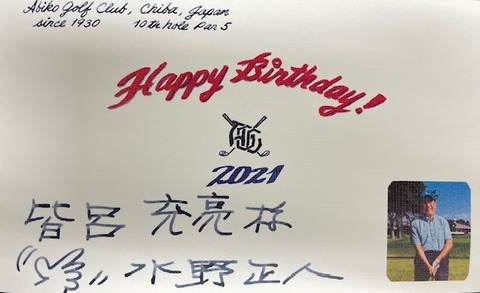 Abiko Golf Club, Chiba, Japan
since 1930 10th hole Par 5
Happy Birthday!
2021
皆呂 充亮 様
水野正人